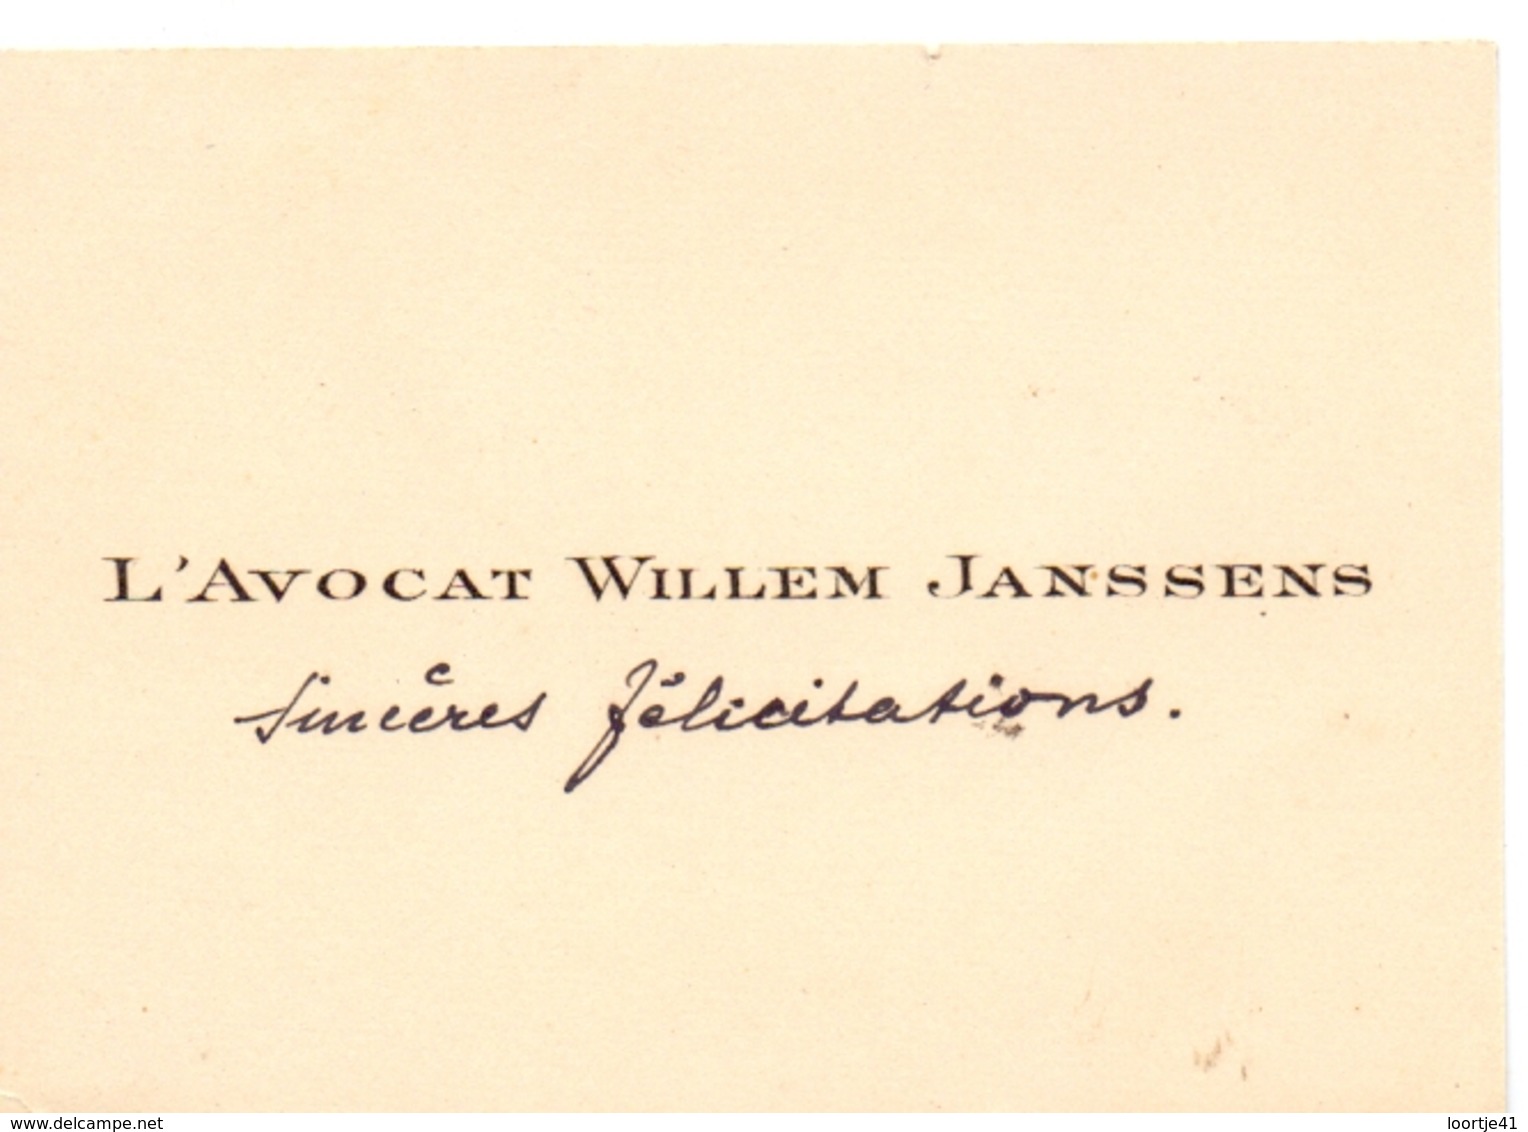 L'AVOCAT WILLEM JANSSENS
Sincères félicitations.
www.delcampe.net
loortje41